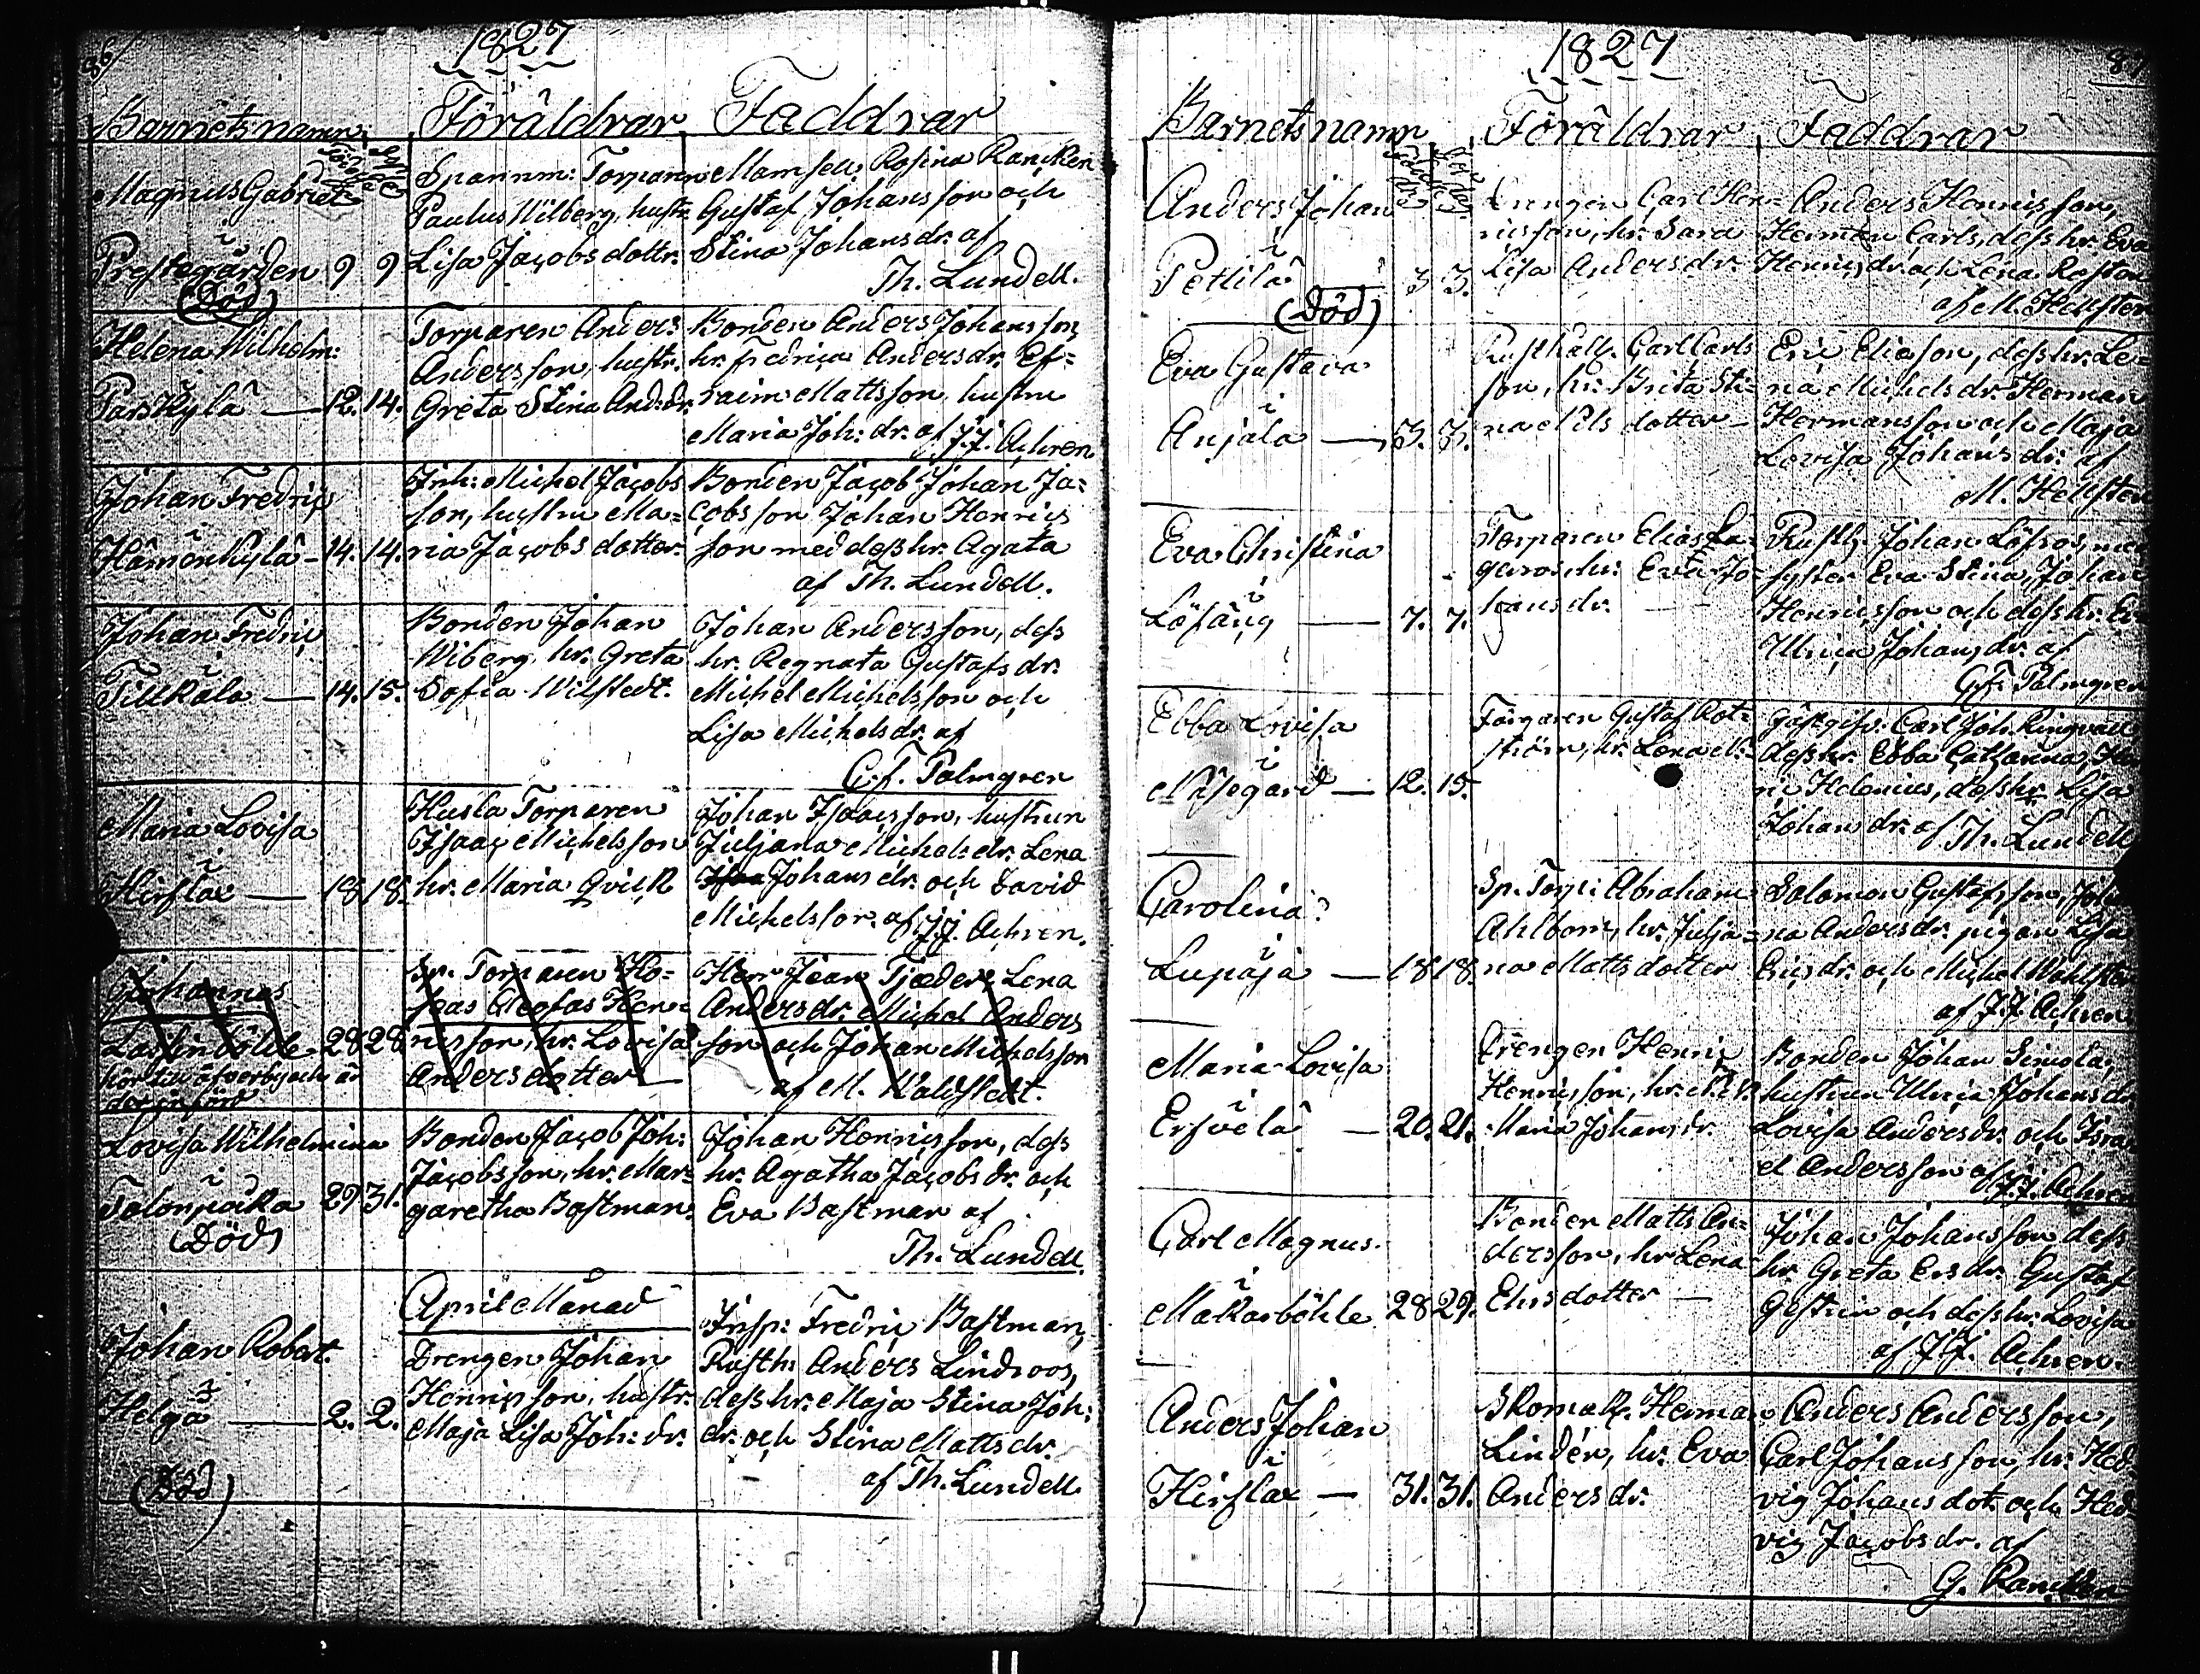 86
1827
Barnets namn
Föräldrar
Faddrar
Född
Döpt
Magnus Gabriel
i
Prestegården 9 9
(Död)
Sparnm: Torparen
Paulus Wilberg, hustr.
Lisa Jacobs dottr.
Mamsell Rosina Rancken
Gustaf Johansson och
Stina Johansdr. af
Th. Lundell.
Helena Wilhelm:
i
Parskylä — 12. 14.
Torparen Anders
Andersson, hustr.
Greta Stina And: dr.
Bonden Anders Johansson,
hr. Fredrica Andersdr. Ef=
raim Mattsson, hustru
Maria Joh: dr. af J.J. Achren
Johan Fredric
Hämenkylä — 14. 14.
Inh: Michel Jacobs
son, hustru Ma=
ria Jacobs dotter.
Bonden Jacob Johan Ja=
cobsson Johan Henrics
son med dess hr. Agata
af Th. Lundell.
Johan Fredric
i
Tillkala — 14. 15.
Bonden Johan
Wiberg, hr. Greta
Sofia Wilstedt.
Johan Andersson, dess
hr. Regnata Gustafs dr.
Michel Michelsson och
Lisa Michelsdr. af
C.f. Palmgren
Maria Lovisa
i
Hirslax — 18 18.
Husla Torparen
Isaac Michelsson
hr. Maria Qvick
Johan Isaacsson, hustrun
Juljana Michels dr. Lena
Johans dr. och David
Michelsson. af J.J. Achren.
Johannes
Lassinbölle 28 28
hör till Esperby och är
der införd
Sp. Torparen Ho=
seas Cleofas Hen=
ricsson, hr. Lovisa
Anders dotter —
Herr Jean Tjæder, Lena
Andersdr. Michel Anders
son och Johan Michelsson
af M. Waldstedt.
Lovisa Wilhelmina
i
Tolonpäka 29 31.
(Död)
Bonden Jacob Joh:
Jacobsson, hr. Mar=
garetha Bastman.
Johan Henricsson, dess
hr. Agatha Jacobs dr. och
Eva Bastman af
Th. Lundell.
April Månad
Johan Robert.
i
Helgå — 2. 2.
(Död)
Drengen Johan
Henricsson, hustr.
Maja Lisa Joh: dr.
Insp: Fredric Bastman,
Rusth: Anders Lindroos,
dess hr. Maja Stina Joh:
dr. och Stina Mattsdr.
af Th. Lundell.
87
1827
Barnets namn
Föräldrar
Faddrar
Anders Johan
i
Pettilä 3 3.
(Död)
Drengen Carl Hen=
ricsson, hr. Sara
Lisa Andersdr.
Anders Henricsson,
Herman Carls, dess hr. Eva
Henricsdr. och Lena Rostan
af M. Hellsten
Eva Gustava
i
Anjala — 3. 3.
Rusthåll. Carl Carls
son, hr. Brita Sti=
na Nils dotter —
Eric Eliasson, dess hr. Le=
na Michels dr. Herman
Hermansson och Maja
Lovisa Johans dr. af
M. Hellsten
Eva Christina
i
Löfäng — 7. 7.
Torparen Elias La=
geros, hr. Eva Jo=
hansdr.
Rusth. Johan Löfros, med
syster Eva Stina, Johan
Henricsson och dess hr.
Ulrica Johansdr. af
C.F. Palmgren
Ebba Lovisa
i
Näsegård — 12. 15.
Färgaren Gustaf Rot=
ström, hr. Lena
Gästgifv: Carl Joh. Ringvall
dess hr. Ebba Catharina,
Helenius, dess hr. Lisa
Johansdr. af Th. Lundell
Carolina
i
Lupaja — 18 18.
Sp. Torp: Abraham
Ahlbom, hr. Julja=
na Matts dotter
Salomon Gustafsson,
na Andersdr. pigan Lisa
Ericsdr. och Michel Wahlsten
af J.J. Achren
Maria Lovisa
i
Ersvelä — 20. 21.
Drengen Henric
Henricsson, hr.
Maria Johansdr.
Bonden Johan Simola,
hustrun Ulrica Johansdr
Lovisa Andersdr. och Isra=
el Andersson af J.J. Achren
Carl Magnus.
i
Makarböhle 28 29.
Bonden Matts An=
dersson, hr Lena
Elisdotter —
Johan Johansson dess
hr. Greta Ersdr. Gustaf
och dess hr. Lovisa
af J.J. Achren.
Anders Johan
i
Hirslax — 31. 31.
Skomak. Herman
Lindén, hr. Eva
Andersdr.
Anders Andersson,
Carl Johansson, hr. Hed=
vig Johans dot. och Hed=
vig Jacobsdr. af
G. Rancken